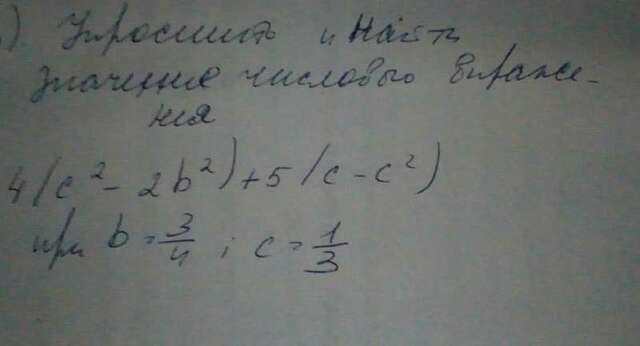 ) Упростить и найти
значение числового выраже-
ния
4(c² - 2b²) + 5(c - c²)
при b = 3/4 ; c = 1/3